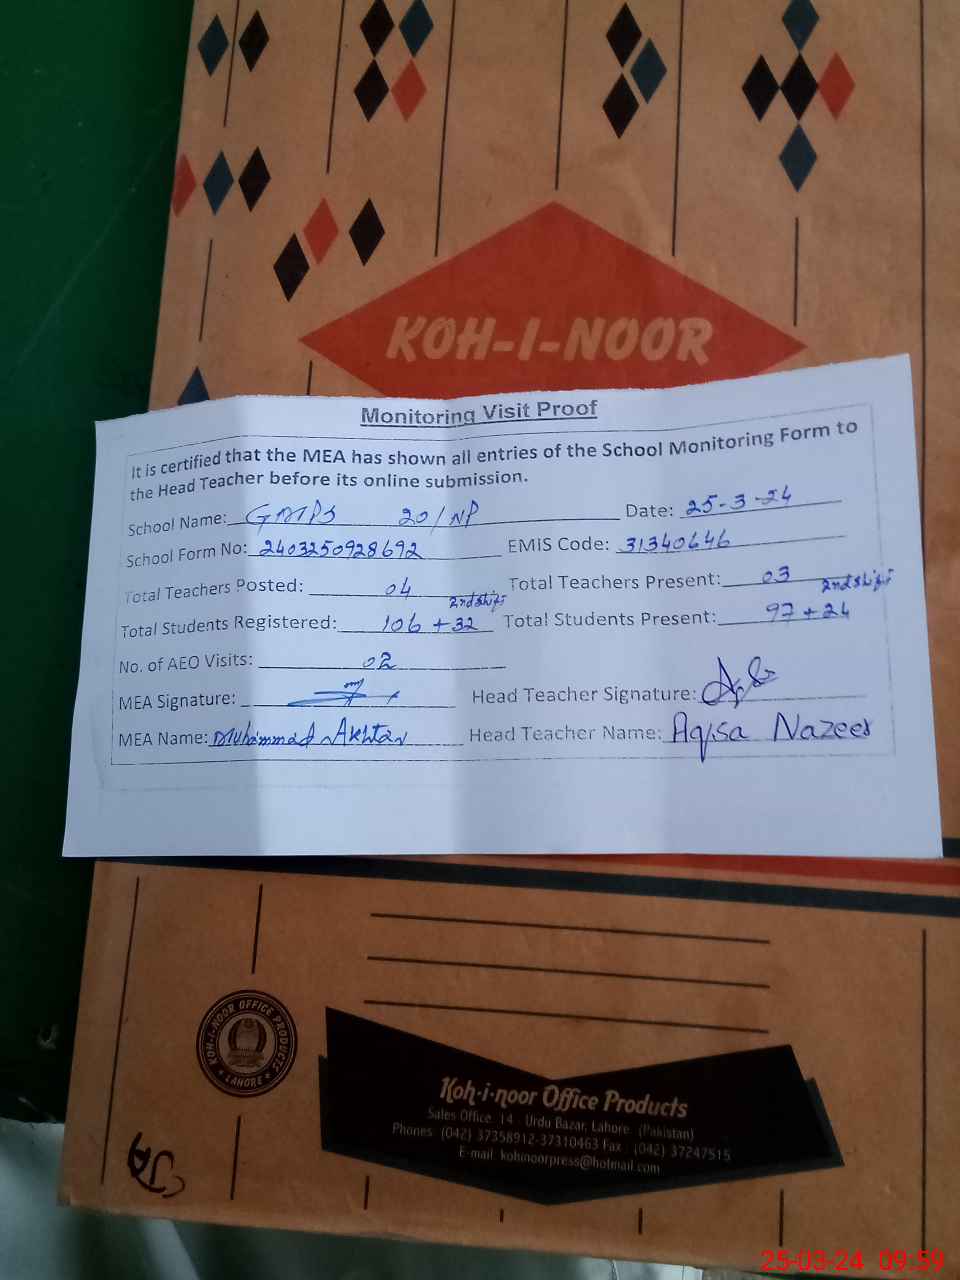 KOH-I-NOOR
Monitoring Visit Proof
It is certified that the MEA has shown all entries of the School Monitoring Form to
the Head Teacher before its online submission.
School Name: GMPS 20/NP Date: 25-3-24
School Form No: 2403250928692 EMIS Code: 31340646
Total Teachers Posted: 04 Total Teachers Present: 03
2nd shift 2nd shift
Total Students Registered: 106 + 32 Total Students Present: 97 + 24
No. of AEO Visits: 02
MEA Signature: Head Teacher Signature:
MEA Name: Muhammad Akhtar Head Teacher Name: Aqisa Nazeer
KOH-I-NOOR OFFICE PRODUCTS
LAHORE
Koh-i-noor Office Products
Sales Office: 14 - Urdu Bazar, Lahore. (Pakistan)
Phones: (042) 37358912-37310463 Fax : (042) 37247515
E-mail: kohinoorpress@hotmail.com
25-03-24 09:59